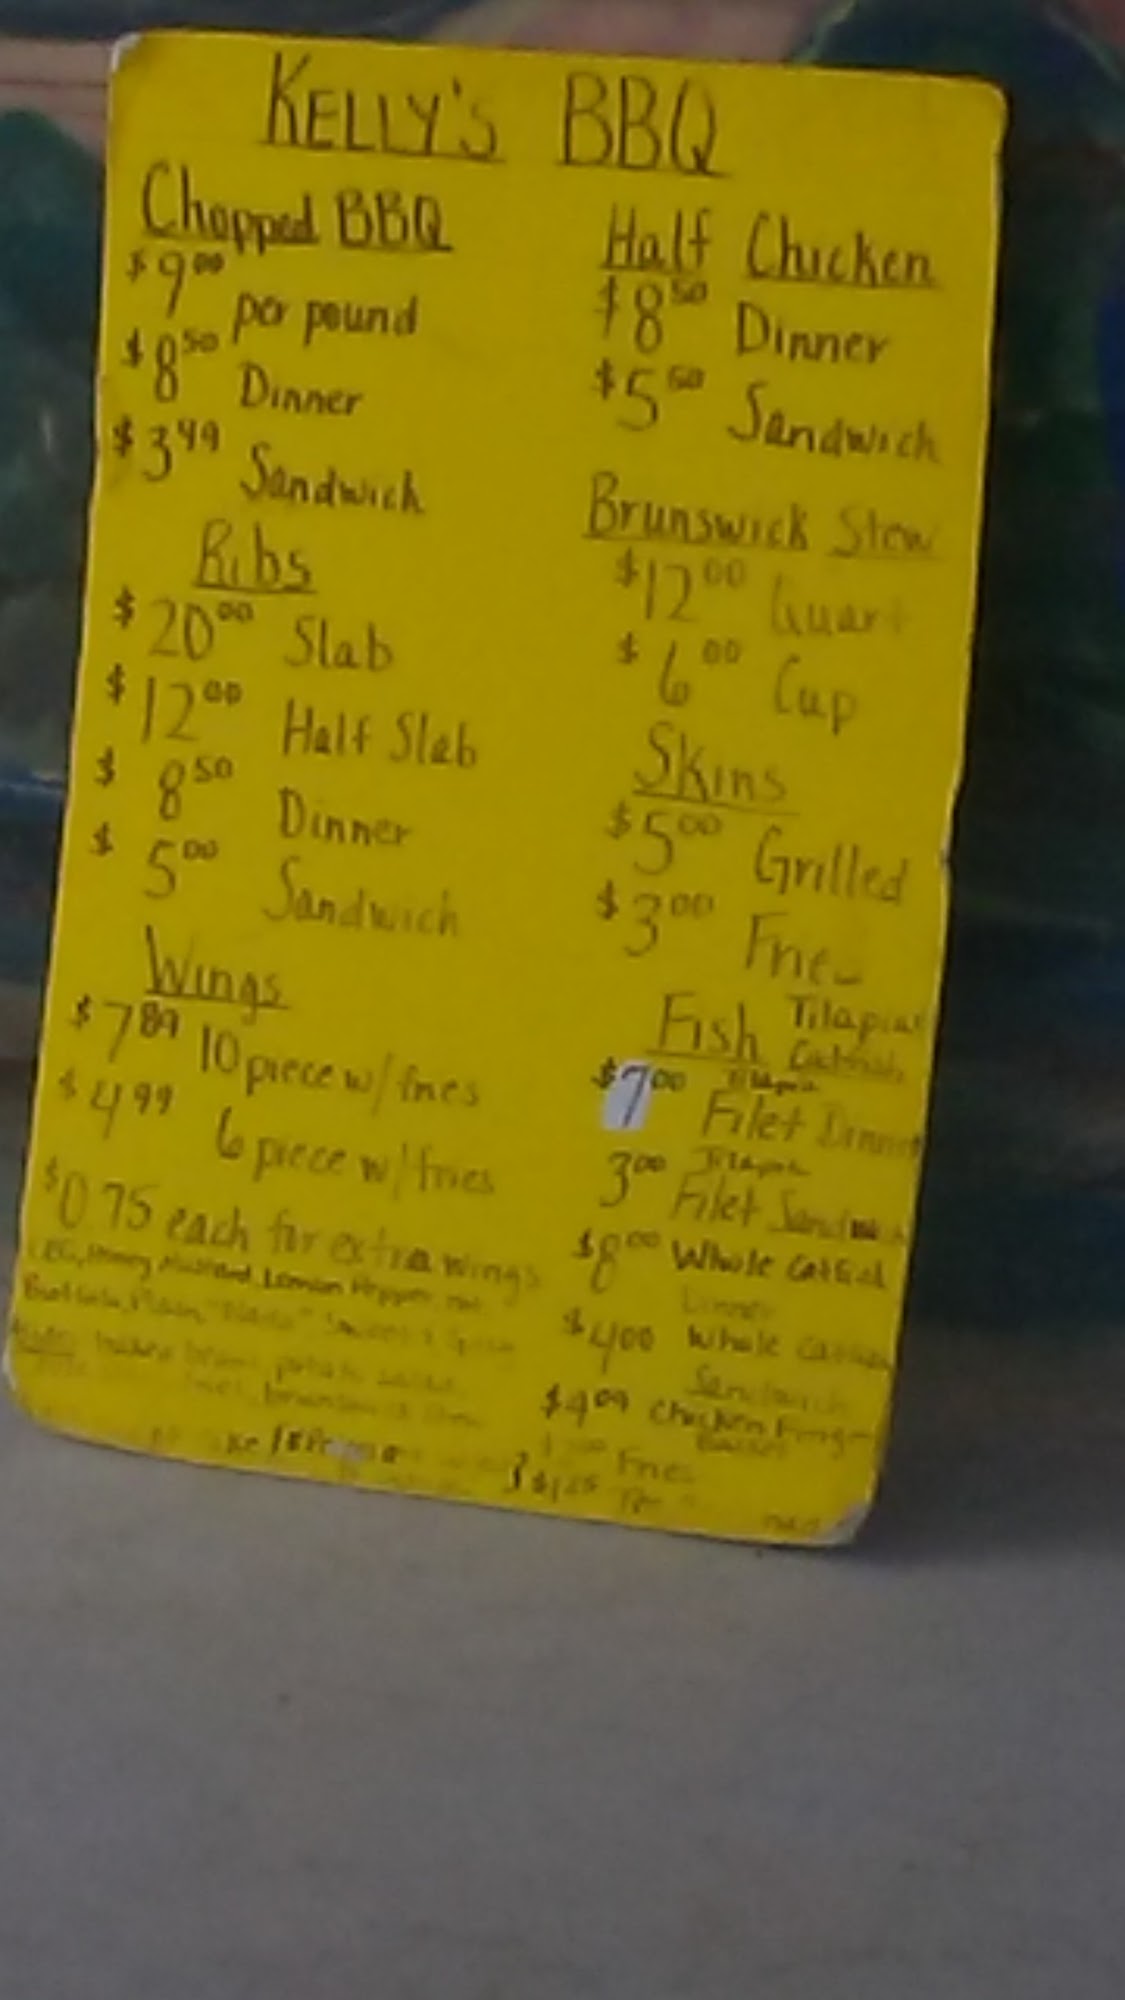 KELLY'S BBQ
Chopped BBQ
$9.00 per pound
$8.50 Dinner
$3.49 Sandwich
Ribs
$20.00 Slab
$12.00 Half Slab
$8.50 Dinner
$5.00 Sandwich
Wings
$7.89 10 piece w/fries
$4.99 6 piece w/fries
$0.75 each for extra wings
Honey Mustard, Lemon Pepper,
Plain
baked beans, potato salad
Half Chicken
$8.50 Dinner
$5.50 Sandwich
Brunswick Stew
$12.00 Quart
$6.00 Cup
Skins
$5.00 Grilled
$3.00
Fish Tilapia
Catfish
$7.00 Tilapia
Filet Dinner
3.00 Tilapia
Filet Sandwich
$8.00 Whole Catfish
Dinner
$4.00 Whole Catfish
Sandwich
Chicken
Fries